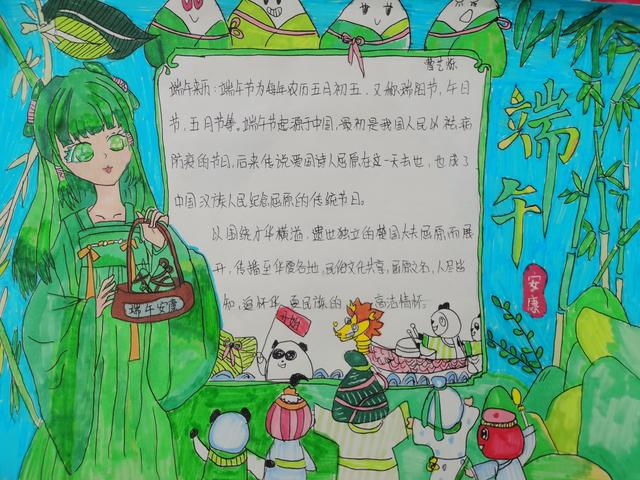 端午来历：端午节为每年农历五月初五，又称端阳节，午日
节，五月节等。端午节起源于中国，最初是我国人民以祛病
防疫的节日，后来传说爱国诗人屈原在这一天去世，也成了
中国汉族人民纪念屈原的传统节日。
以围绕才华横溢、遗世独立的楚国大夫屈原而展
开，传播至华夏各地，民俗文化共享，屈原之名，人尽皆
知，追怀华夏民族的 高洁情怀。
端午
安康
端午安康